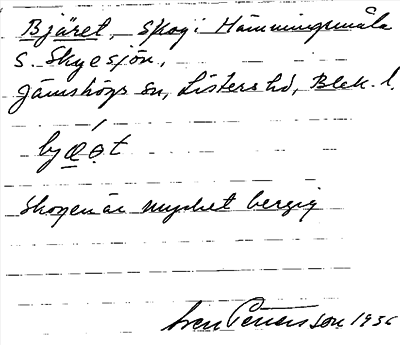 Bjäret, skog i Hämmingsmåla
S. Skyesjön.
Jämshögs sn, Listers hd, Blek. l.
Skogen är mycket bergig
Sven Petersson 1936